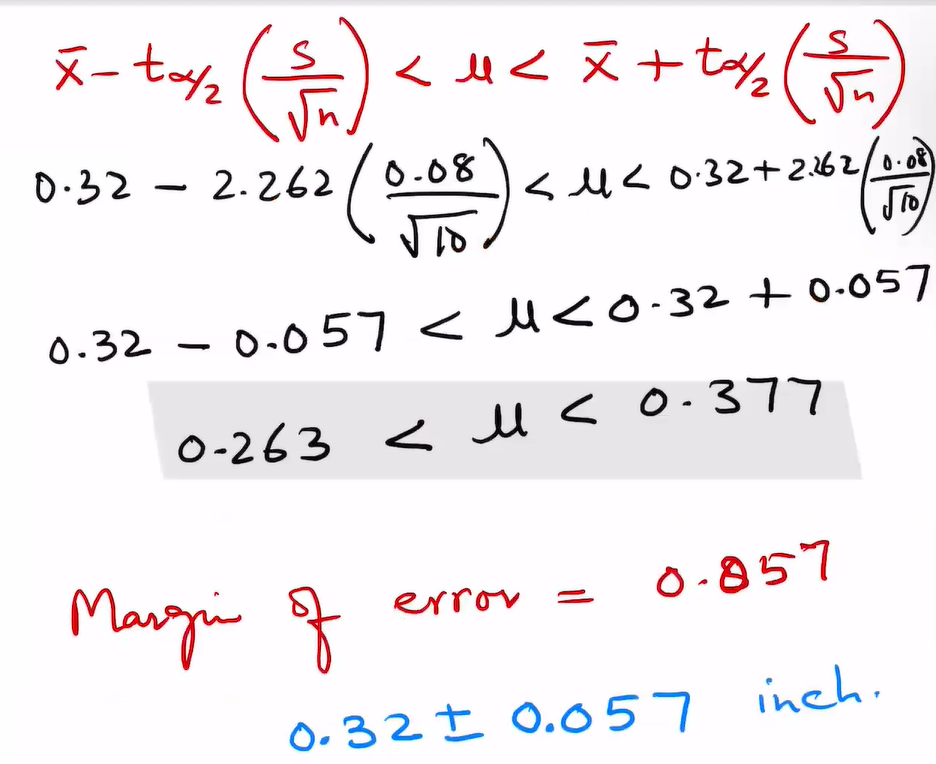 x̄ - tα/2 (s/√n) < μ < x̄ + tα/2 (s/√n)
0.32 - 2.262 (0.08/√10) < μ < 0.32 + 2.262 (0.08/√10)
0.32 - 0.057 < μ < 0.32 + 0.057
0.263 < μ < 0.377
Margin of error = 0.057
0.32 ± 0.057 inch.